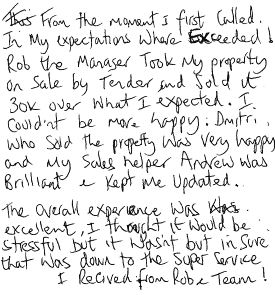 This From the moment I first Called.
In My expectations Where Exceeded!
Rob the Manager Took My property
on Sale by Tender and Sold it
30K over What I expected. I
Could'nt be more happy. Dmitri,
who Sold the property Was very happy
and My Sales helper Andrew Was
Brilliant & Kept me Updated.
The Overall experience Was
excellent, I thought it Would be
stressful but it Wasn't but im Sure
that was down to the Super Service
I Recived from Rob & Team!